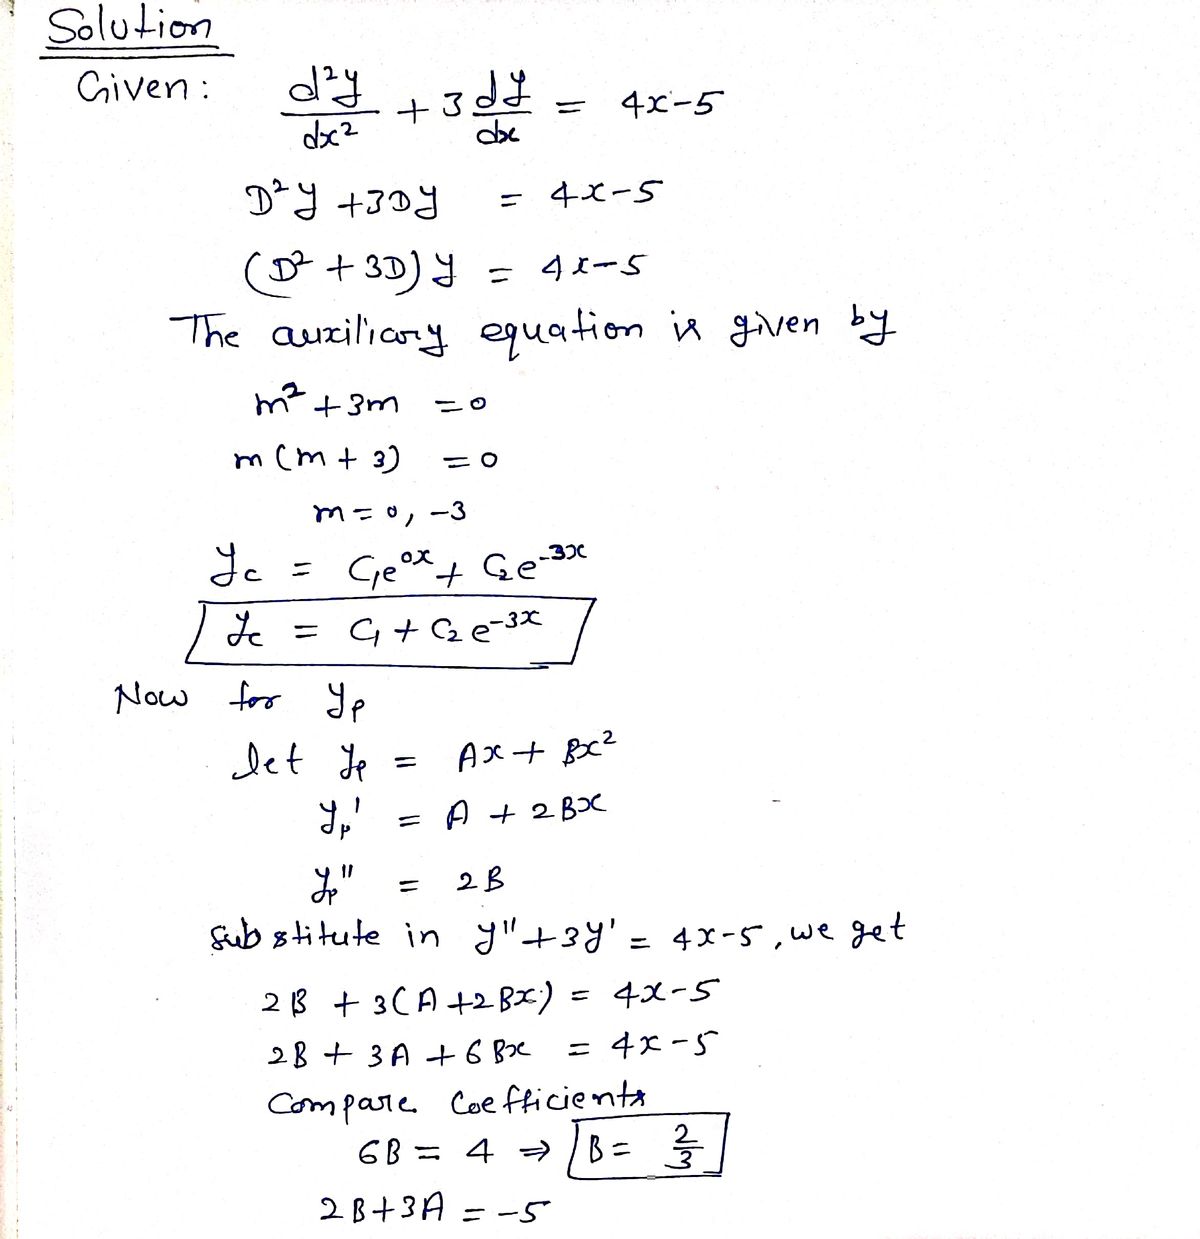 Solution
Given: d²y/dx² + 3 dy/dx = 4x-5
D²y + 3Dy = 4x-5
(D² + 3D) y = 4x-5
The auxiliary equation is given by
m² + 3m = 0
m (m + 3) = 0
m = 0, -3
y_c = C₁e^{0x} + C₂e^{-3x}
y_c = C₁ + C₂ e^{-3x}
Now for y_p
let y_p = Ax + Bx²
y_p' = A + 2Bx
y_p'' = 2B
substitute in y'' + 3y' = 4x-5, we get
2B + 3(A + 2Bx) = 4x-5
2B + 3A + 6Bx = 4x-5
Compare Coefficients
6B = 4 ⇒ B = 2/3
2B + 3A = -5